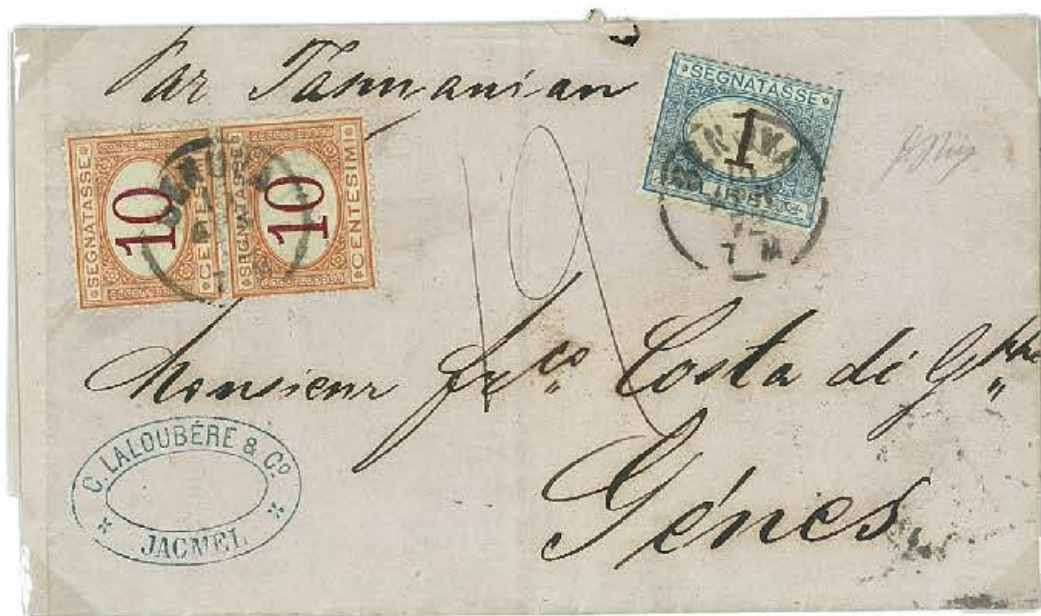 Par Tasmanian
SEGNATASSE
10
CENTESIMI
SEGNATASSE
10
CENTESIMI
GENOVA
SEGNATASSE
1
GENOVA
12
Monsieur Fr.co Costa di G.
Génes.
C. LALOUBÈRE & Cº
JACMEL